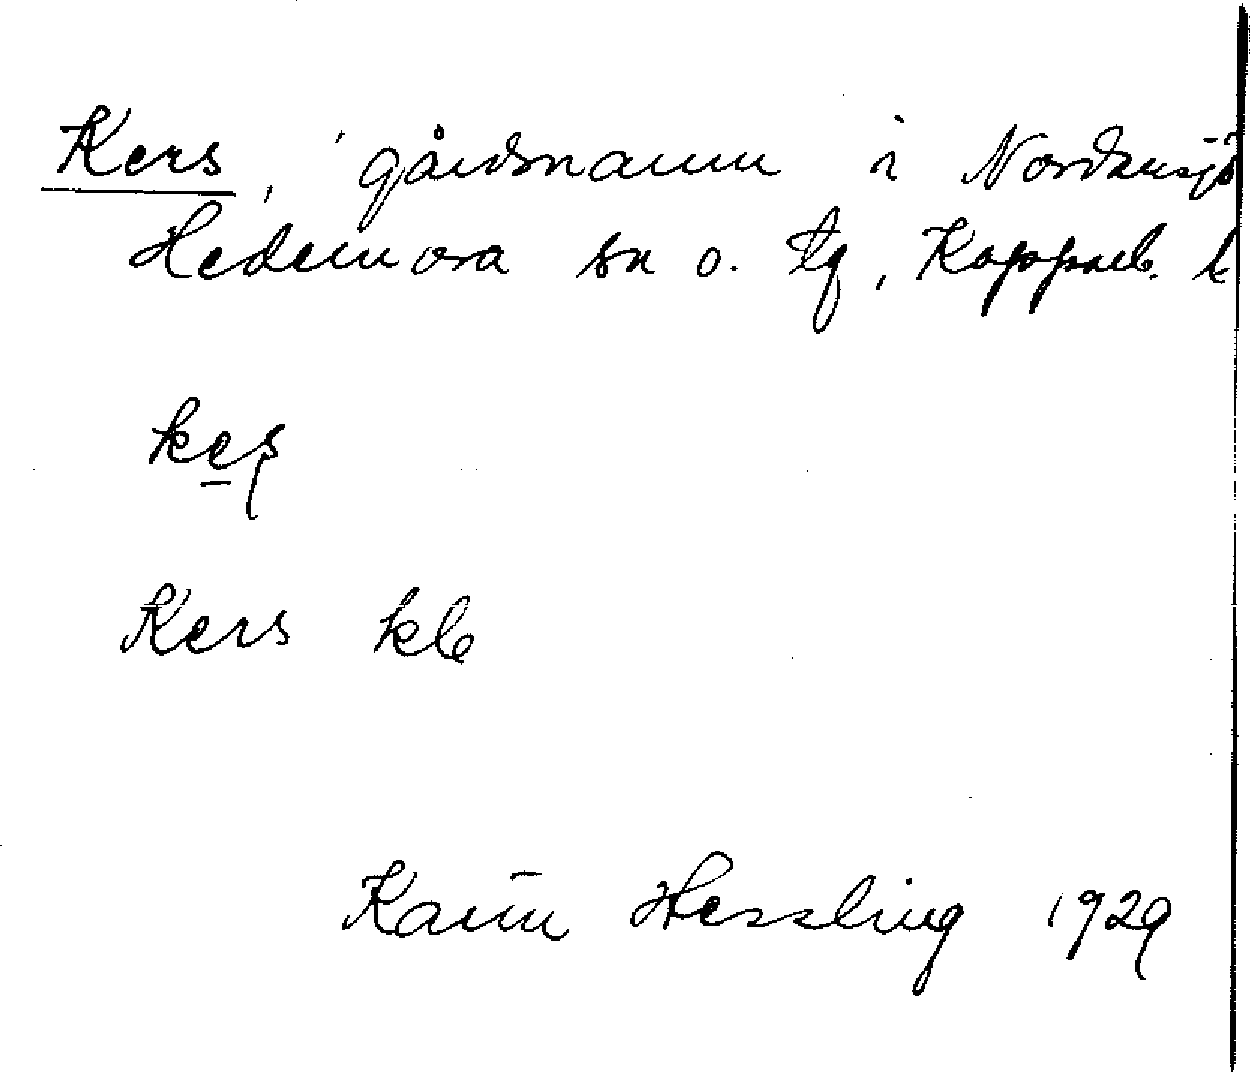 Kers, gårdsnamn i Nordansjö
Hedemora sn o. tg, Kopparb. l
kes
Kers kb
Karin Hessling 1929